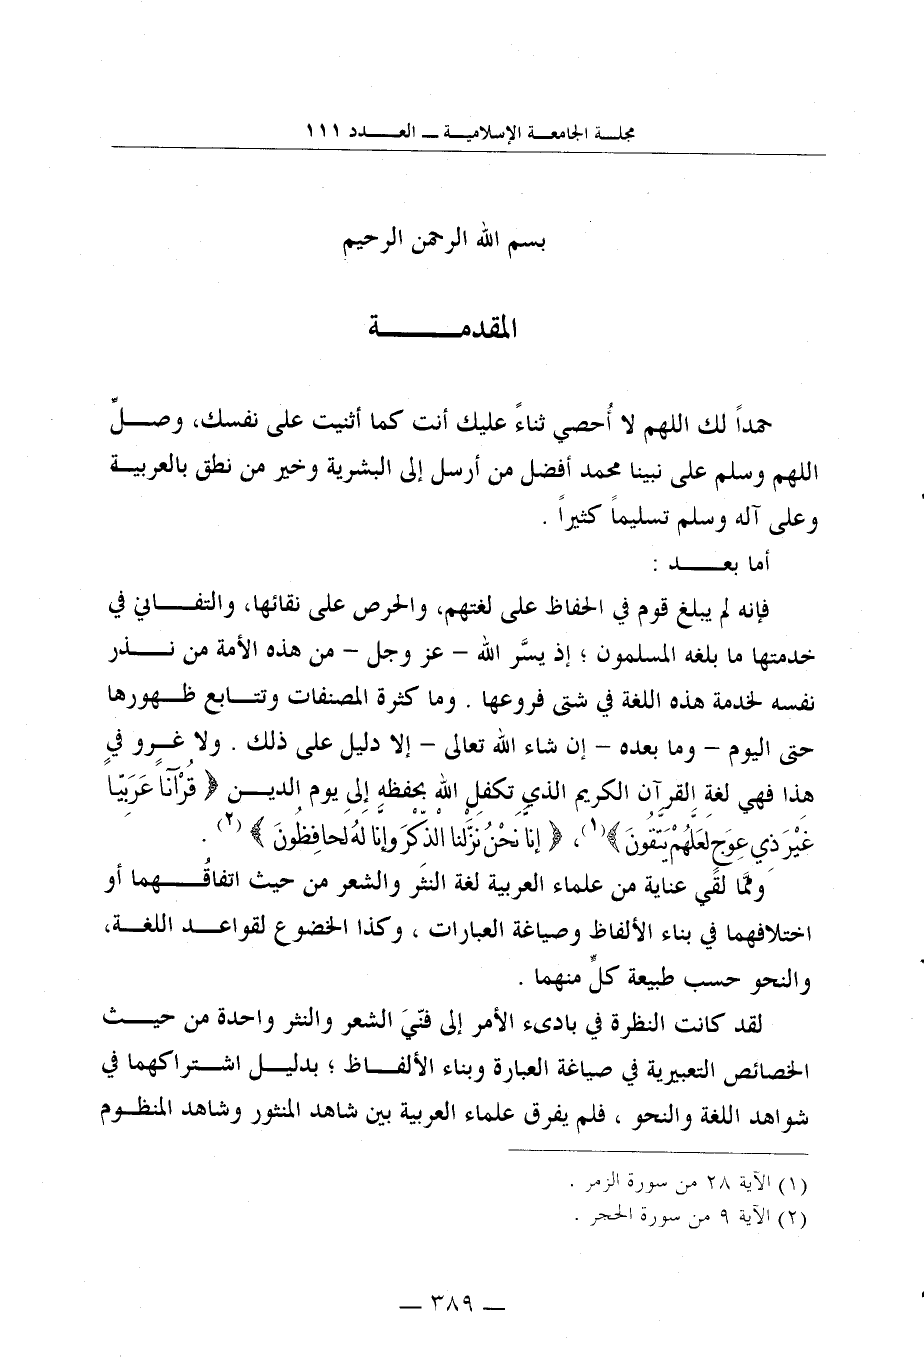 مجلة الجامعة الإسلامية – العدد ١١١
بسم الله الرحمن الرحيم
المقدمة
حمداً لك اللهم لا أُحصي ثناءً عليك أنت كما أثنيت على نفسك، وصلِّ
اللهم وسلم على نبينا محمد أفضل من أرسل إلى البشرية وخير من نطق بالعربية
وعلى آله وسلم تسليماً كثيراً .
أما بعد :
فإنه لم يبلغ قوم في الحفاظ على لغتهم، والحرص على نقائها، والتفاني في
خدمتها ما بلغه المسلمون ؛ إذ يسَّر الله – عز وجل – من هذه الأمة من نذر
نفسه لخدمة هذه اللغة في شتى فروعها . وما كثرة المصنفات وتتابع ظهورها
حتى اليوم – وما بعده – إن شاء الله تعالى – إلا دليل على ذلك . ولا غرو في
هذا فهي لغة القرآن الكريم الذي تكفل الله بحفظه إلى يوم الدين ﴿ قُرْآنًا عَرَبِيًّا
غَيْرَ ذِي عِوَجٍ لَعَلَّهُمْ يَتَّقُونَ ﴾(١)، ﴿ إِنَّا نَحْنُ نَزَّلْنَا الذِّكْرَ وَإِنَّا لَهُ لَحَافِظُونَ ﴾ (٢) .
ومَّما لقي عناية من علماء العربية لغة النثر والشعر من حيث اتفاقُهما أو
اختلافهما في بناء الألفاظ وصياغة العبارات ، وكذا الخضوع لقواعد اللغة،
والنحو حسب طبيعة كلٍّ منهما .
لقد كانت النظرة في بادىء الأمر إلى فنّيَ الشعر والنثر واحدة من حيث
الخصائص التعبيرية في صياغة العبارة وبناء الألفاظ ؛ بدليل اشتراكهما في
شواهد اللغة والنحو ، فلم يفرق علماء العربية بين شاهد المنثور وشاهد المنظوم
(١) الآية ٢٨ من سورة الزمر .
(٢) الآية ٩ من سورة الحجر .
– ٣٨٩ –